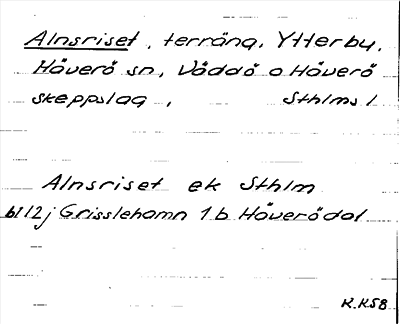 Alnsriset, terräng, Ytterby,
Häverö sn, Väddö o Häverö
skeppslag, Sthlms l
Alnsriset ek Sthlm
bl 12j Grisslehamn 1b Häverödal
K.KSB